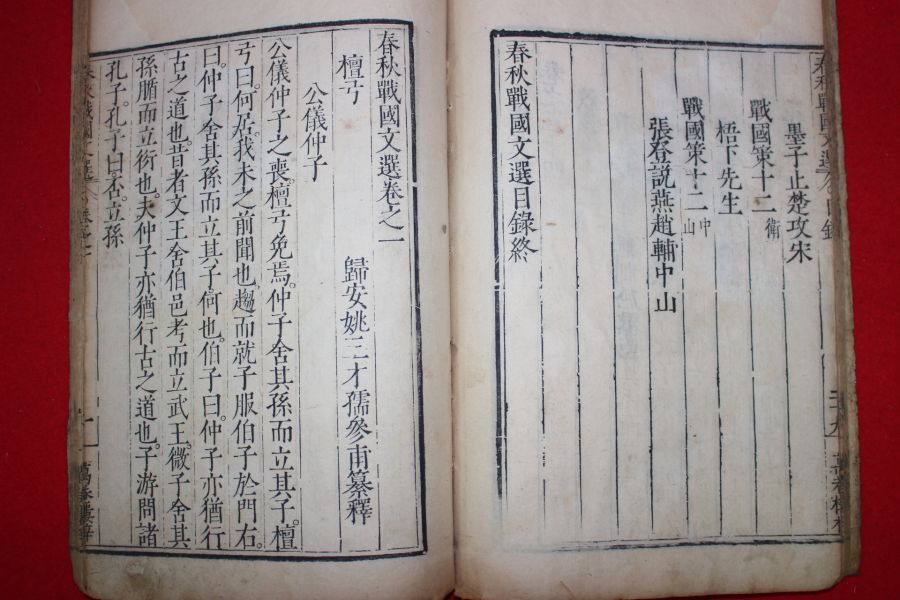 墨子止楚攻宋
戰國策十一 衛
梧下先生
戰國策十二 中山
張登説燕趙輔中山
春秋戰國文選目錄終
春秋戰國文選卷之一
歸安姚三才孺參甫纂釋
檀弓
公儀仲子
公儀仲子之喪。檀弓免焉。仲子舍其孫而立其子。檀
弓曰。何居。我未之前聞也。趨而就子服伯子於門右。
曰。仲子舍其孫而立其子何也。伯子曰。仲子亦猶行
古之道也。昔者文王舍伯邑考而立武王。微子舍其
孫腯而立衍也。夫仲子亦猶行古之道也。子游問諸
孔子。孔子曰。否。立孫